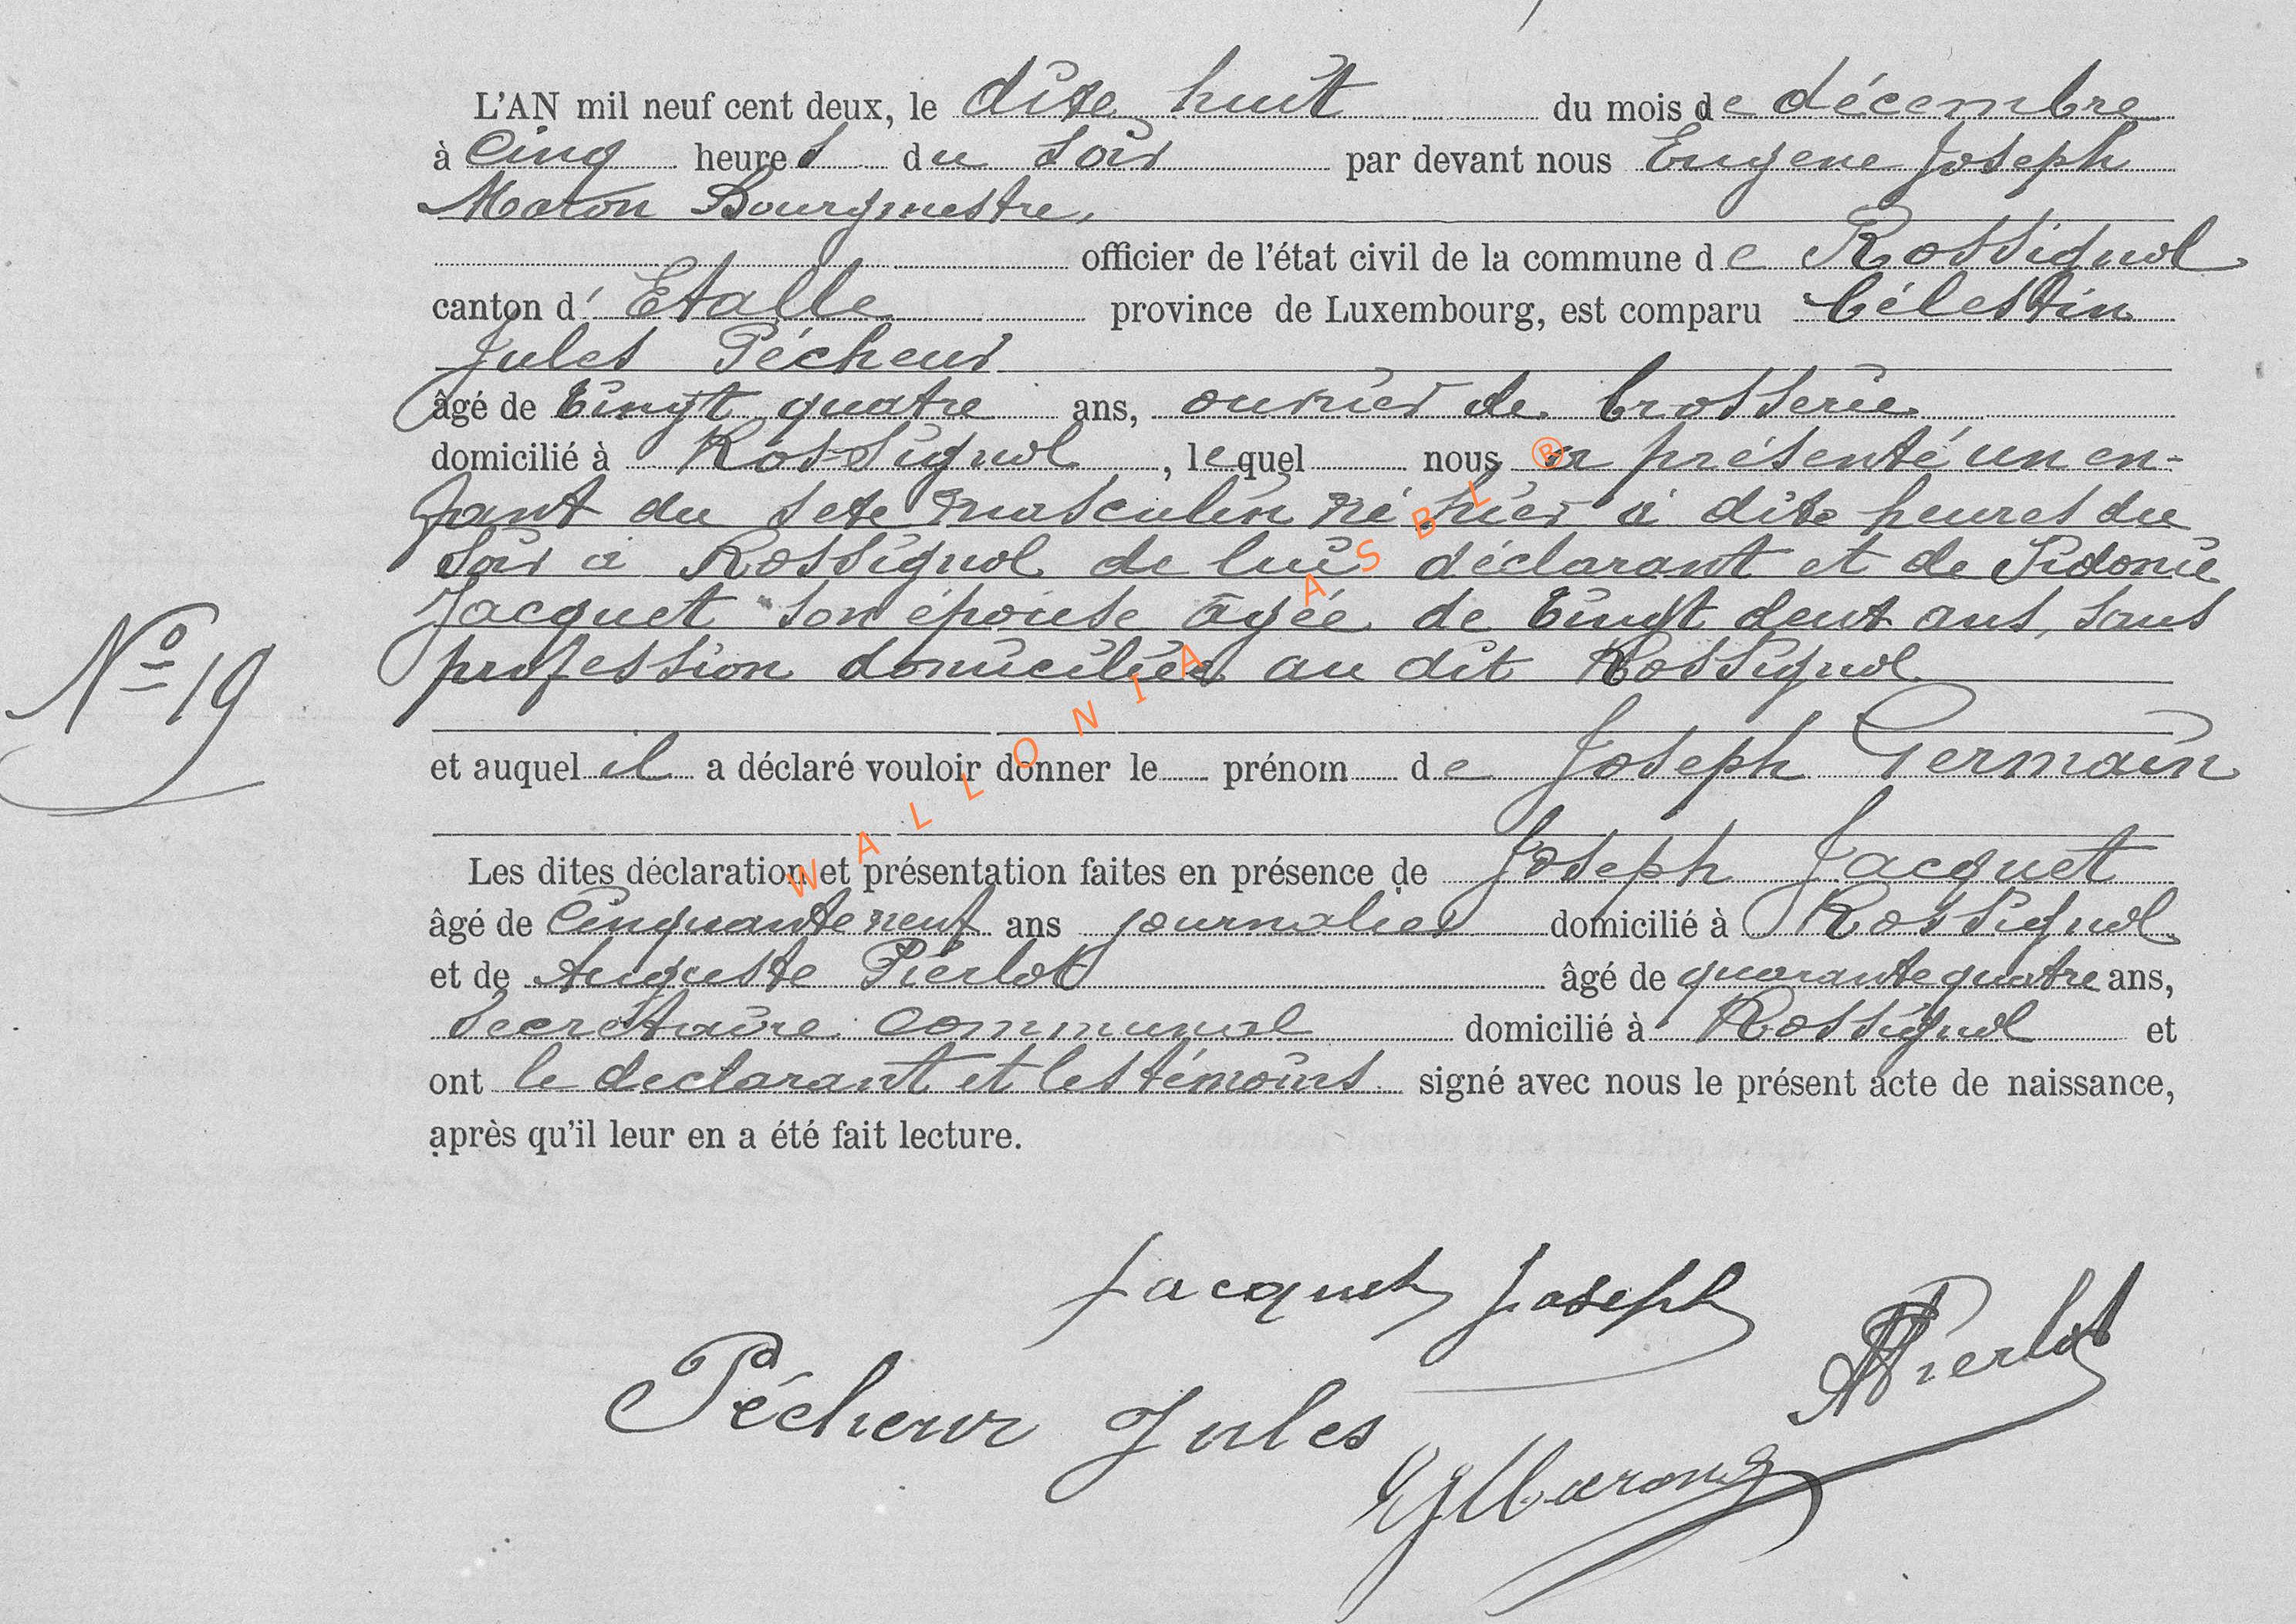 L'AN mil neuf cent deux, le dixe huit du mois de décembre
à Cinq heures du soir par devant nous Eugene Joseph
Maron Bourgmestre,
officier de l'état civil de la commune de Rossignol
canton d' Etalle province de Luxembourg, est comparu Célestin
Jules Pécheur
âgé de Vingt quatre ans, ouvrier de brosserie
domicilié à Rossignol, lequel nous a présenté un en-
fant du sexe masculin né hier à dixe heures du
soir à Rossignol de lui déclarant et de Sidonie
Jacquet son épouse âgée de Vingt deux ans, sans
profession domiciliée au dit Rossignol
No 19
et auquel il a déclaré vouloir donner le prénom de Joseph Germain
Les dites déclaration et présentation faites en présence de Joseph Jacquet
âgé de Cinquante neuf ans journalier domicilié à Rossignol
et de Auguste Pierlot âgé de quarante quatre ans,
Secrétaire communal domicilié à Rossignol et
ont le declarant et les témoins signé avec nous le présent acte de naissance,
après qu'il leur en a été fait lecture.
Jacquet Joseph
APierlot
Pécheur Jules
EJMaron
WALLONIA ASBL ®